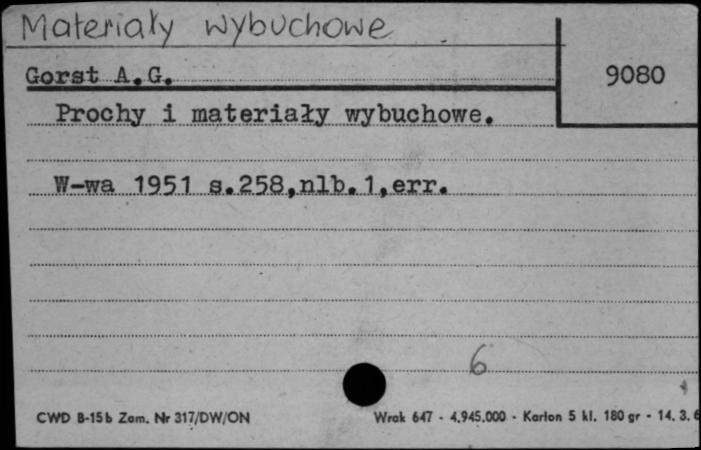 Materiały wybuchowe
Gorst A.G.
9080
Prochy i materiały wybuchowe.
W-wa 1951 s.258,nlb.1,err.
6
CWD B-15b Zam. Nr 317/DW/ON
Wrak 647 - 4.945.000 - Karton 5 kl. 180 gr - 14. 3. 6